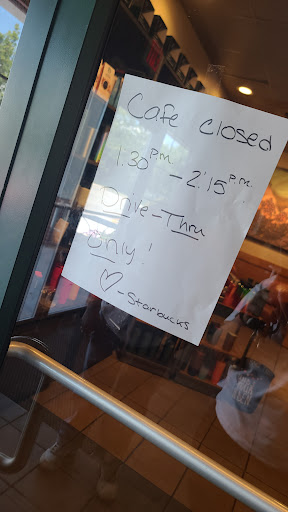 Cafe closed
1:30 p.m. - 2:15 p.m.
Drive-Thru
Only!
♡-Starbucks